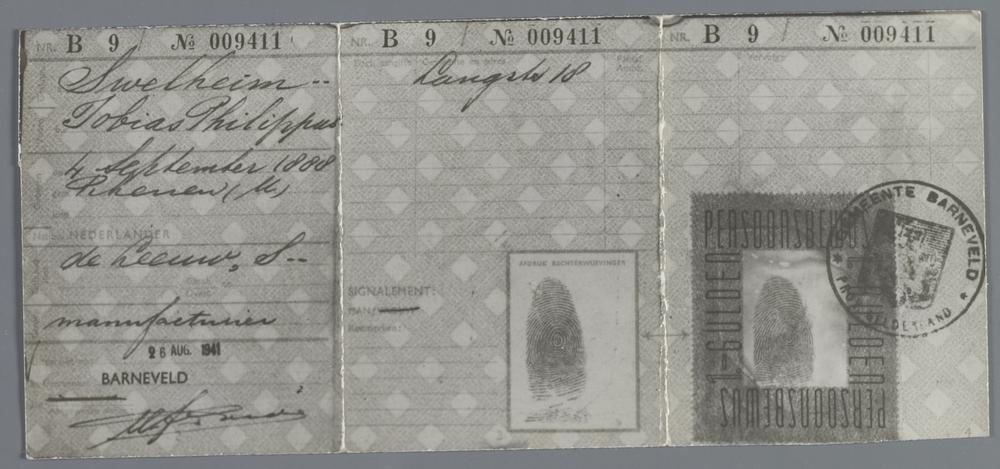 NR. B 9 / № 009411
Swelheim --
Tobias Philippus
4 September 1888
Rhenen (U)
NEDERLANDER
de Leeuw, S--
manufacturier
26 AUG. 1941
BARNEVELD
NR. B 9 / № 009411
Langstr 18
SIGNALEMENT:
MAN/
Kenmerken:
AFDRUK RECHTERWIJSVINGER
NR. B 9 / № 009411
PERSOONSBEWIJS
1=GULDEN
GULDEN
PERSOONSBEWIJS
GEMEENTE BARNEVELD
4